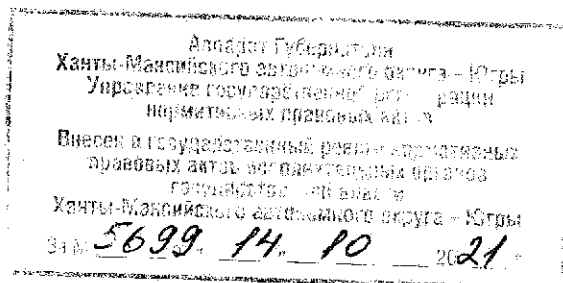 Аппарат Губернатора
Ханты-Мансийского автономного округа – Югры
Управление государственной регистрации
нормативных правовых актов
Внесен в государственный реестр нормативных
правовых актов исполнительных органов
государственной власти
Ханты-Мансийского автономного округа – Югры
За № 5699 "14" 10 2021 г.